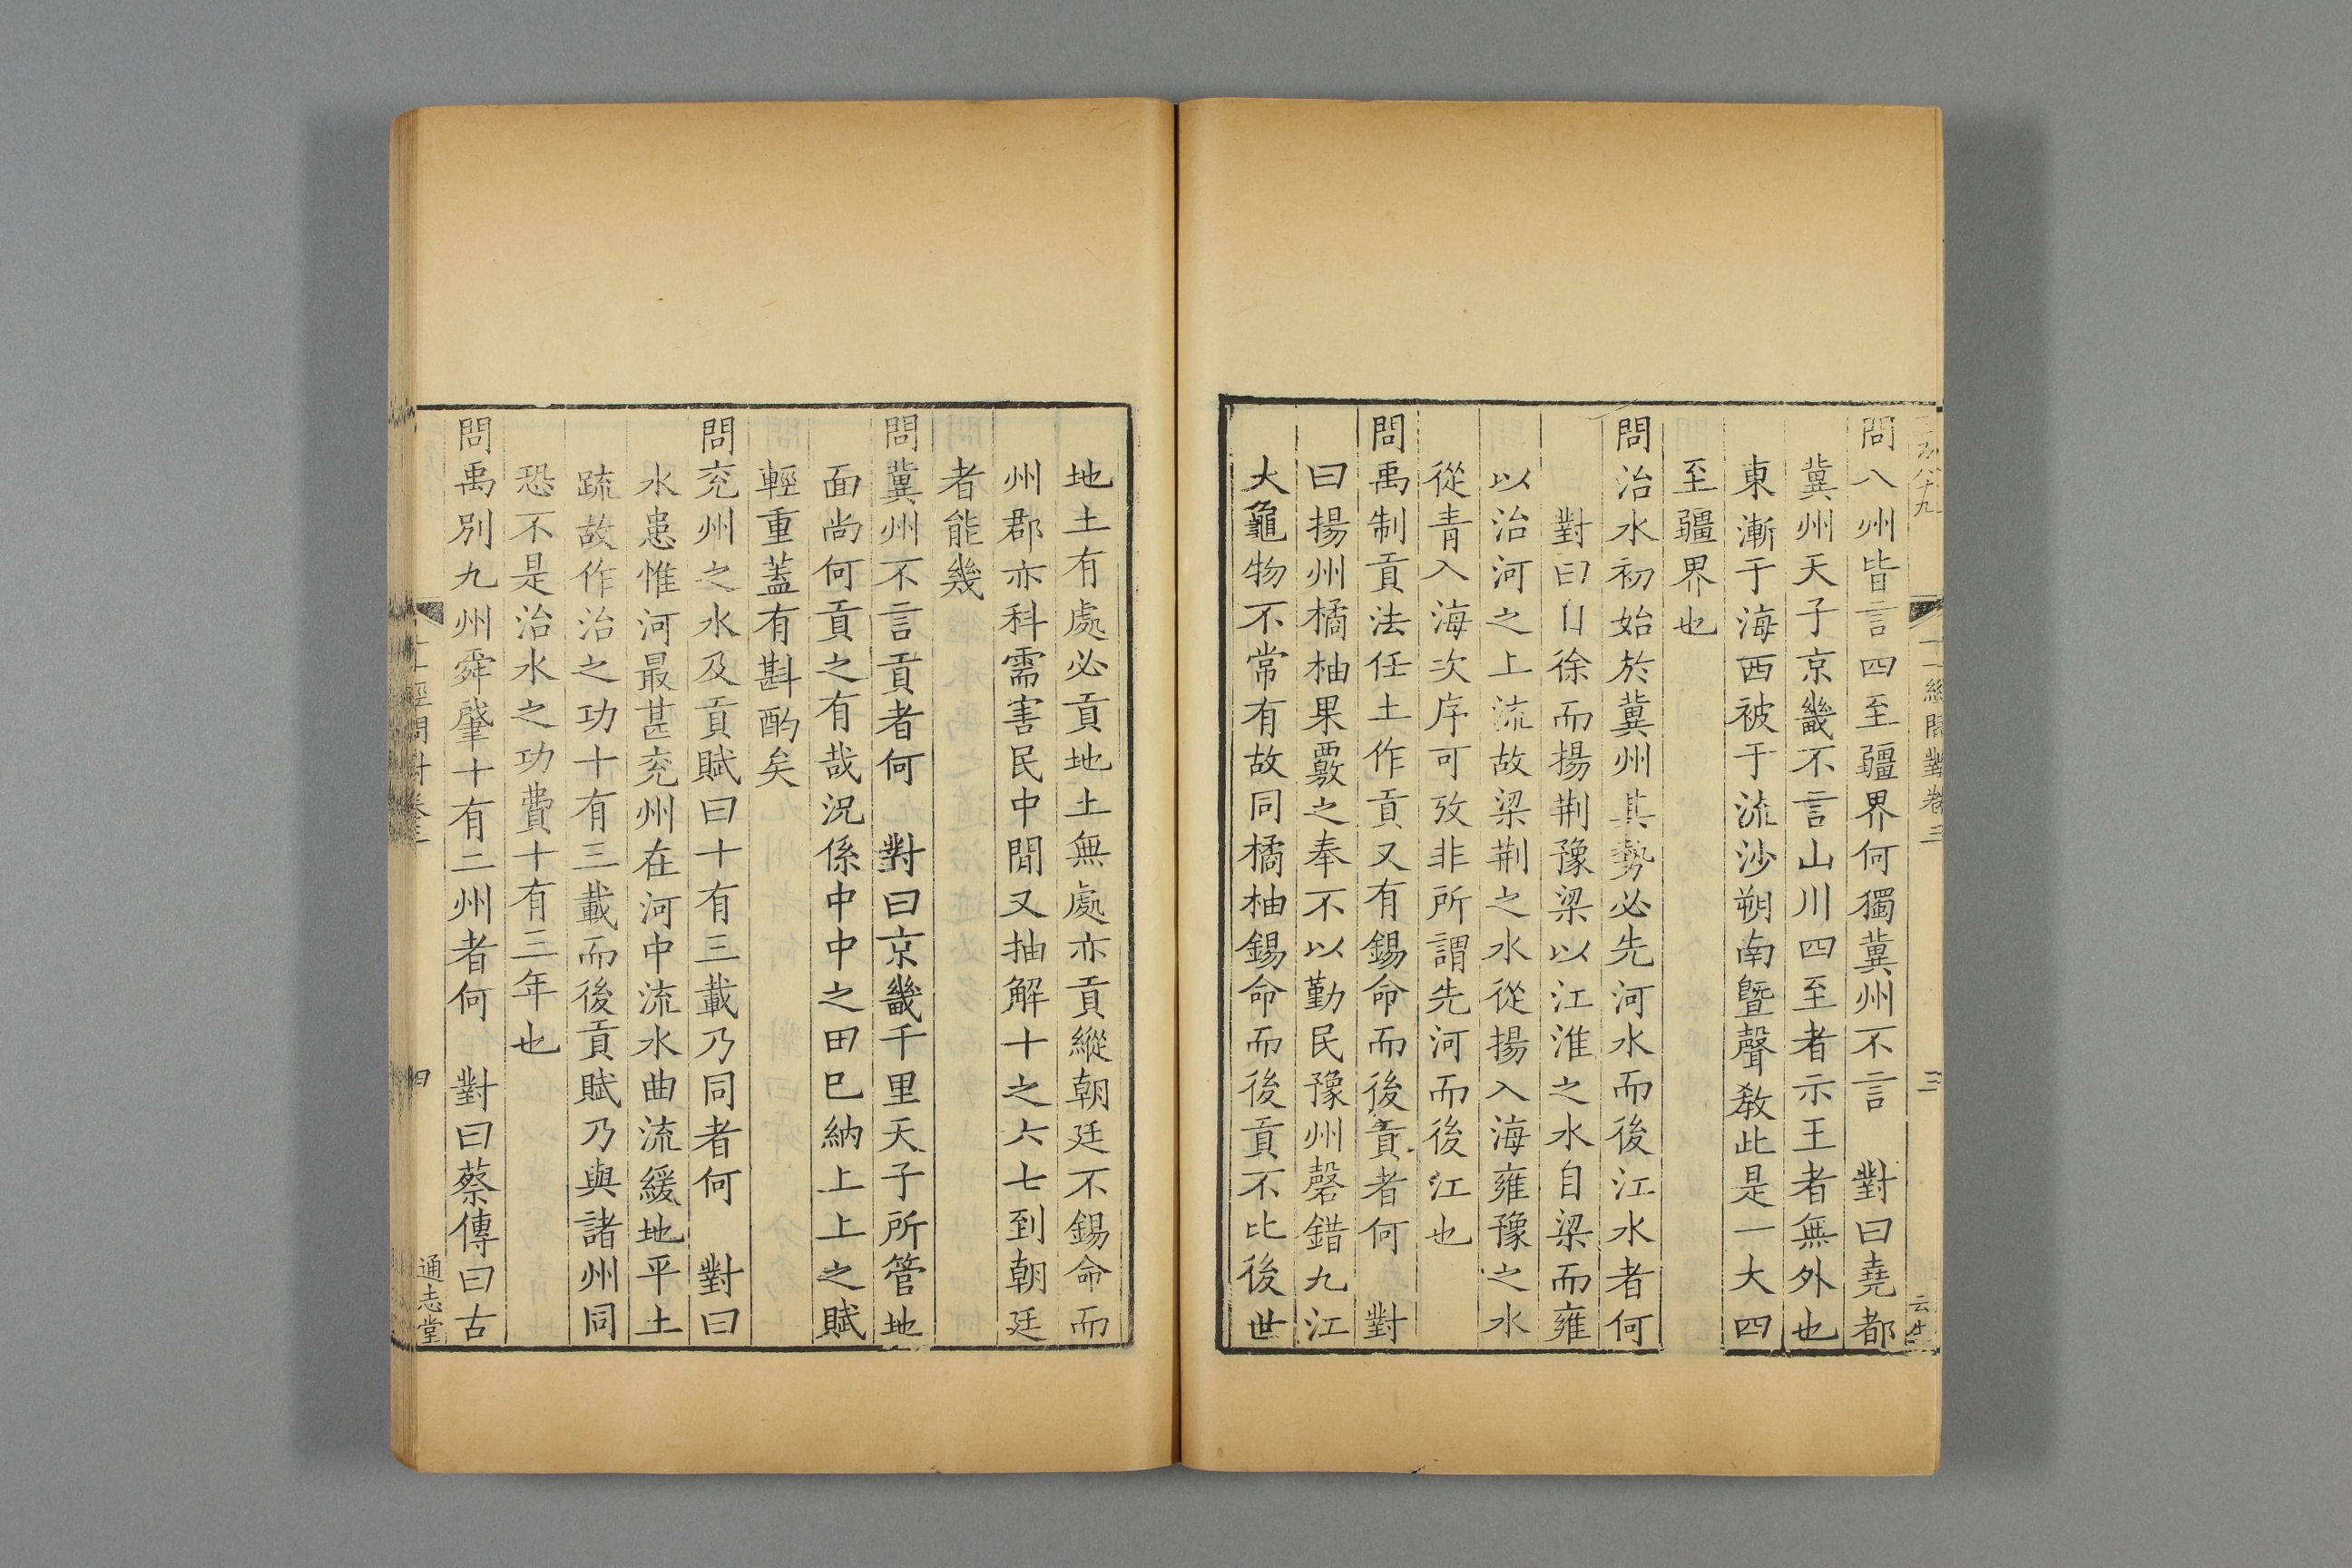 問八州皆言四至疆界何獨冀州不言　對曰堯都
冀州天子京畿不言山川四至者示王者無外也
東漸于海西被于流沙朔南曁聲敎此是一大四
至疆界也
問治水初始於冀州其勢必先河水而後江水者何
對曰徐而揚荆豫梁以江淮之水自梁而雍
以治河之上流故梁荆之水從揚入海雍豫之水
從青入海次序可攷非所謂先河而後江也
問禹制貢法任土作貢又有錫命而後貢者何　對
曰揚州橘柚果覈之奉不以勤民豫州磬錯九江
大龜物不常有故同橘柚錫命而後貢不比後世
地土有處必貢地土無處亦貢縱朝廷不錫命而
州郡亦科需害民中閒又抽解十之六七到朝廷
者能幾
問冀州不言貢者何　對曰京畿千里天子所管地
面尚何貢之有哉況係中中之田巳納上上之賦
輕重蓋有斟酌矣
問兖州之水及貢賦曰十有三載乃同者何　對曰
水患惟河最甚兖州在河中流水曲流緩地平土
疏故作治之功十有三載而後貢賦乃與諸州同
恐不是治水之功費十有三年也
問禹別九州舜肇十有二州者何　對曰蔡傳曰古
經問對卷三
四
通志堂